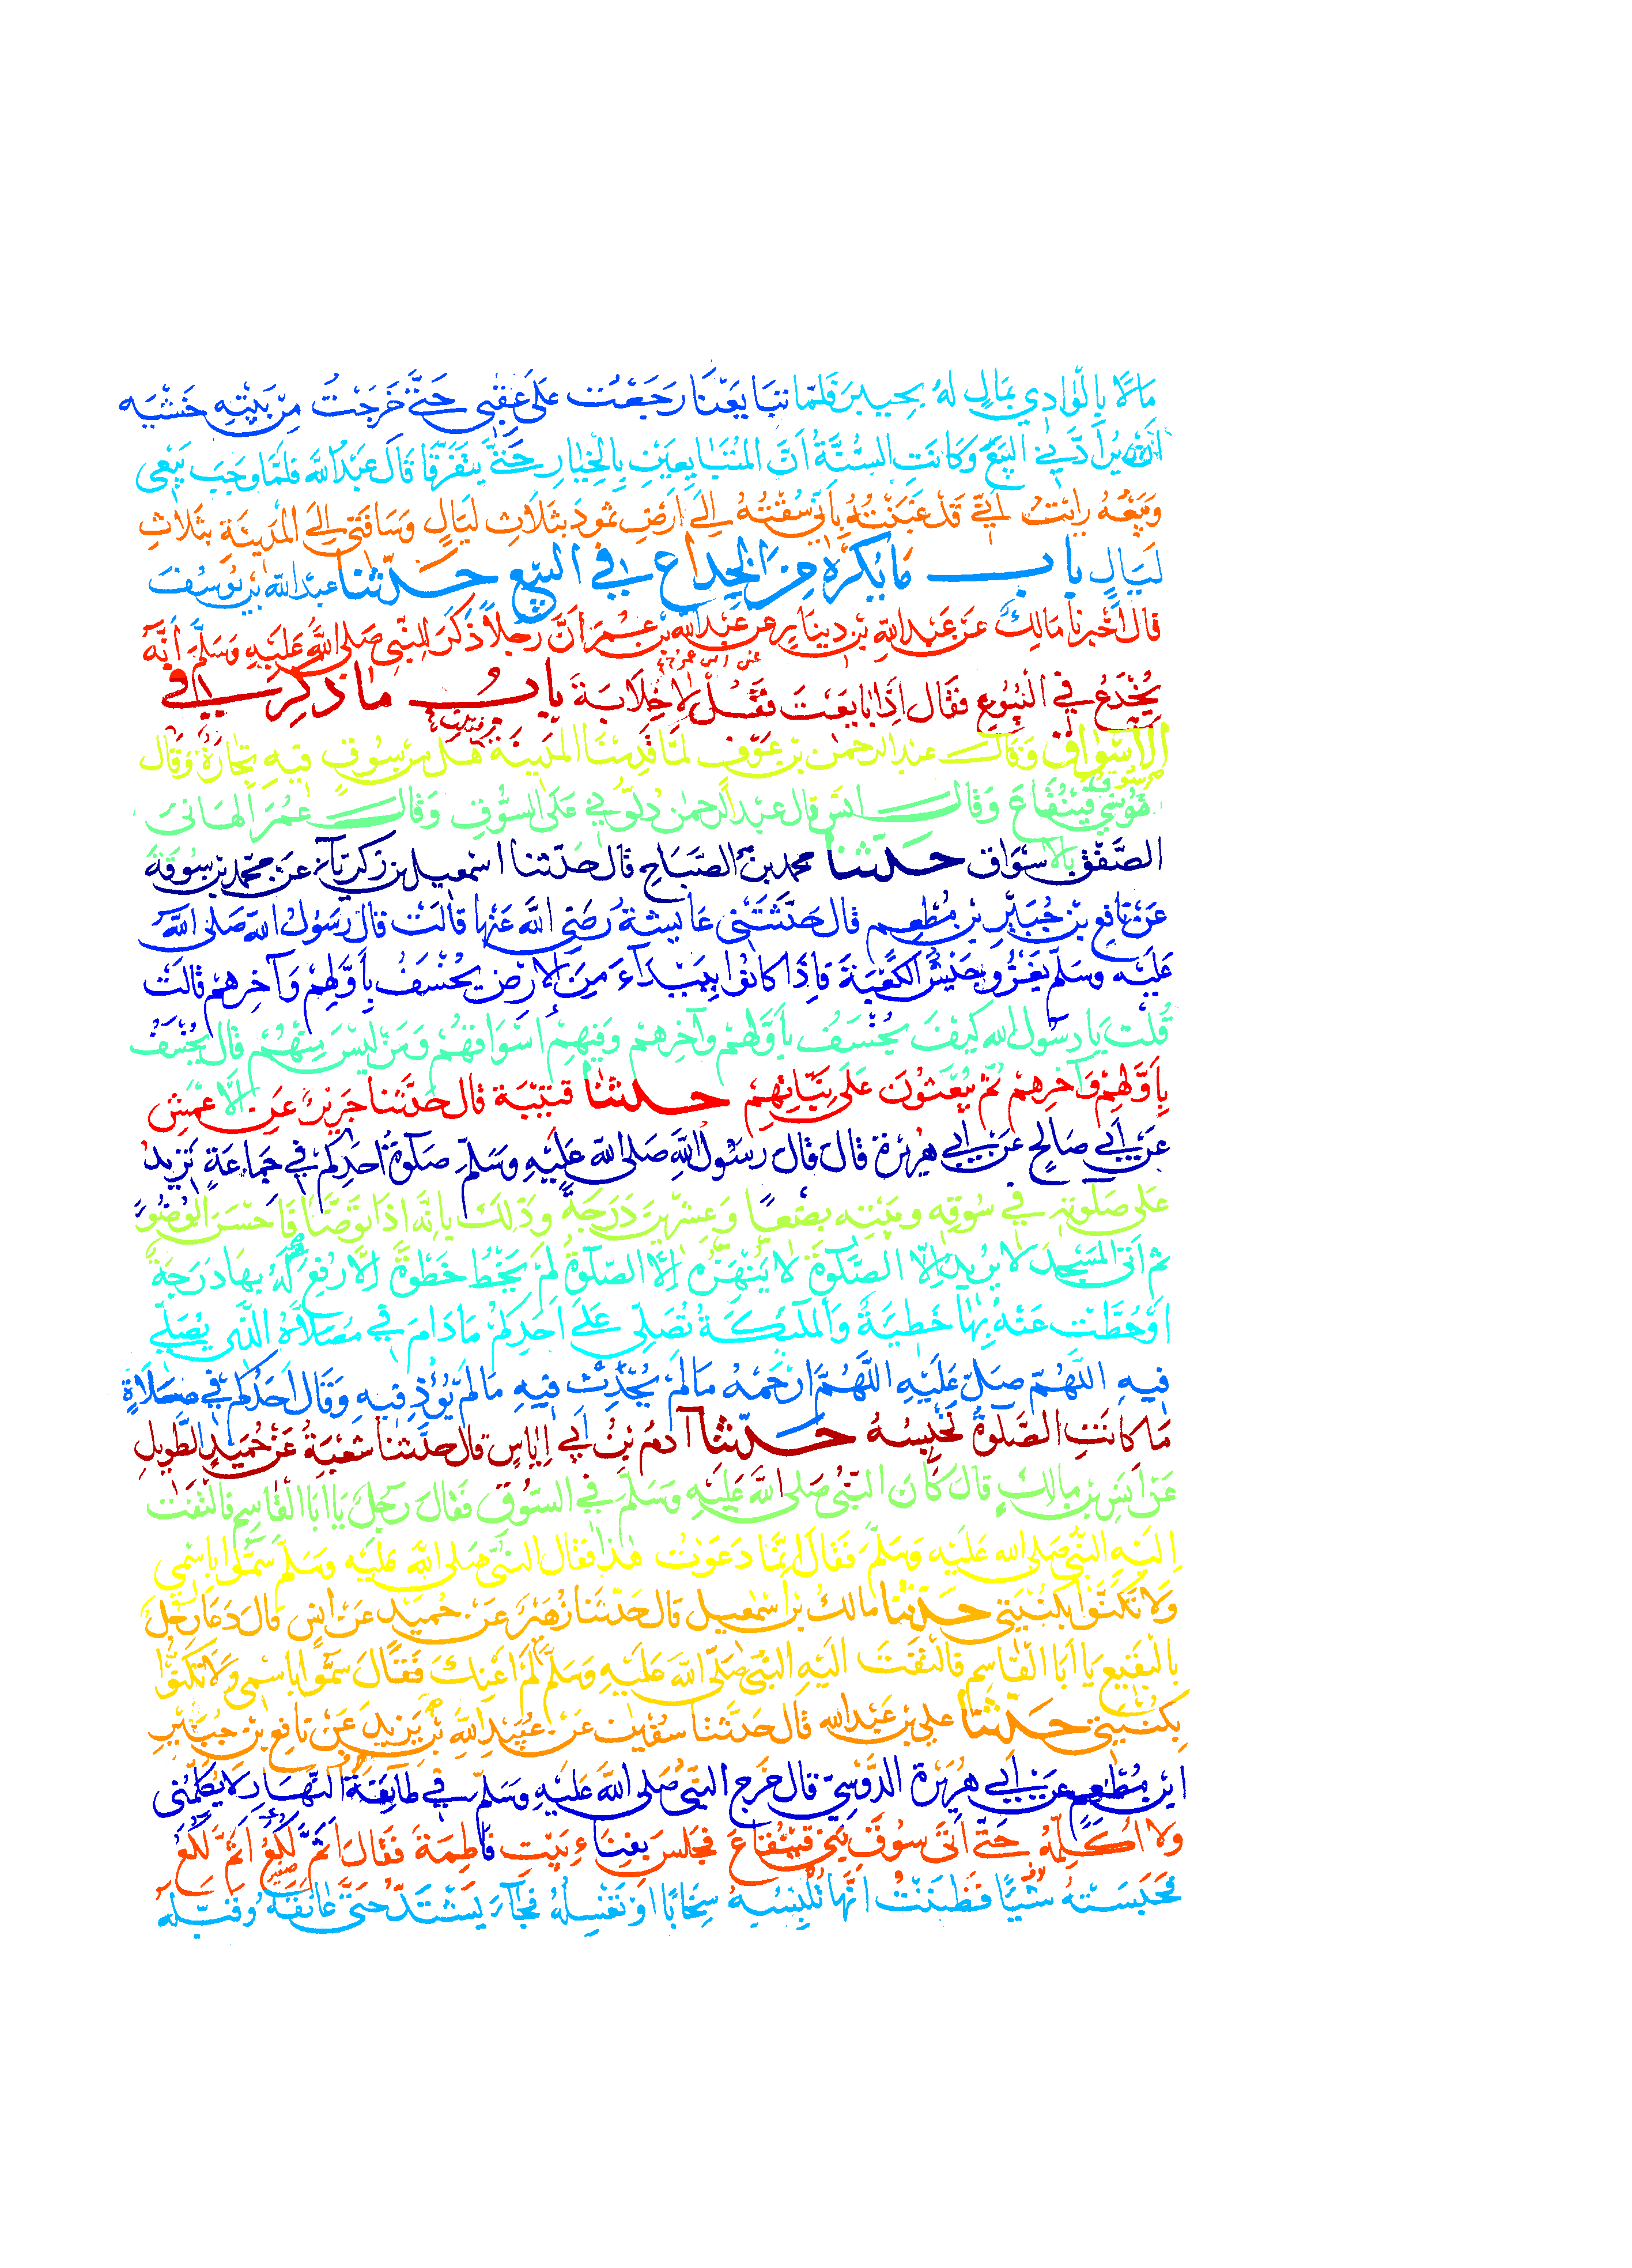 مَالًا بِالْوَادِي بِمَالٍ لَهُ بِخَيْبَرَ فَلَمَّا تَبَايَعْنَا رَجَعْتُ عَلَى عَقِبِي حَتَّى خَرَجْتُ مِنْ بَيْتِهِ خَشْيَةَ
أَنْ يُرَادَّنِي الْبَيْعَ وَكَانَتِ السُّنَّةُ أَنَّ الْمُتَبَايِعَيْنِ بِالْخِيَارِ حَتَّى يَتَفَرَّقَا قَالَ عَبْدُ اللَّهِ فَلَمَّا وَجَبَ بَيْعِي
وَبَيْعُهُ رَأَيْتُ أَنِّي قَدْ غَبَنْتُهُ بِأَنِّي سُقْتُهُ إِلَى أَرْضِ ثَمُودَ بِثَلَاثِ لَيَالٍ وَسَاقَنِي إِلَى الْمَدِينَةِ بِثَلَاثِ
لَيَالٍ بَاب مَا يُكْرَهُ مِنَ الْخِدَاعِ فِي الْبَيْعِ حَدَّثَنَا عبد الله بن يُوسُفَ
قَالَ أَخْبَرنَا مَالِكٌ عَنْ عَبْدِ اللَّهِ بْنِ دِينَارٍ عَنْ عَبْدِ اللَّهِ بْنِ عُمَرَ أَنَّ رَجُلًا ذَكَرَ لِلنَّبِيِّ صَلى اللَّهُ عَلَيْهِ وَسَلَّمَ أَنَّهُ
يُخْدَعُ فِي الْبُيُوعِ فَقَالَ إِذَا بَايَعْتَ فَقُلْ لَا خِلَابَةَ بَابُ مَا ذُكِرَ فِي
الْأَسْوَاقِ وَقَالَ عبد الرحمن بن عَوْفٍ لَمَّا قَدِمْنَا الْمَدِينَةَ هَلْ مِنْ سُوقٍ فِيهِ تِجَارَةٌ وَقَالَ
سُوقُ قَيْنُقَاعَ وَقَالَ أنس قال عبد الرحمن دُلُّونِي عَلَى السُّوقِ وَقَالَ عُمَرُ أَلْهَانِي
الصَّفْقُ بِالْأَسْوَاقِ حَدَّثَنَا محمد بن الصَّبَّاحِ قَالَ حَدَّثنا اسْمعيل بن زَكَرِيَّآء عَنْ محمد بن سُوقَةَ
عَنْ نَافِعِ بْنِ جُبَيْرِ بْنِ مُطْعِمٍ قَالَ حَدَّثَتْنِي عَائِشَةُ رَضِيَ اللَّهُ عَنْهَا قَالَتْ قَالَ رَسُولُ اللَّهِ صَلَى اللَّهُ
عَلَيْهِ وَسَلَّمَ يَغْزُو جَيْشٌ الْكَعْبَةَ فَإِذَا كَانُوا بِبَيْدَآءَ مِنَ الْأَرْضِ يُخْسَفُ بِأَوَّلِهِمْ وَآخِرِهِمْ قَالَتْ
قُلْتُ يَا رَسُولَ اللَّهِ كَيْفَ يُخْسَفُ بِأَوَّلِهِمْ وَآخِرِهِمْ وَفِيهِمْ أَسْوَاقُهُمْ وَمَنْ لَيْسَ مِنْهُمْ قَالَ يُخْسَفُ
بِأَوَّلِهِمْ وَآخِرِهِمْ ثُمَّ يُبْعَثُونَ عَلَى نِيَّاتِهِمْ حَدَّثَنَا قُتَيْبَةُ قَالَ حَدَّثَنَا جَرِيرٌ عَنِ الْأَعْمَشِ
عَنْ أَبِي صَالِحٍ عَنْ أَبِي هُرَيْرَةَ قَالَ قَالَ رَسُولُ اللَّهِ صَلى اللَّهُ عَلَيْهِ وَسَلَّمَ صَلَوةُ أَحَدِكُمْ فِي جَمَاعَةٍ تَزِيدُ
عَلَى صَلَوتِهِ فِي سُوقِهِ وَبَيْتِهِ بِضْعًا وَعِشْرِينَ دَرَجَةً وَذَلِكَ بِأَنَّهُ إِذَا تَوَضَّأَ فَأَحْسَنَ الْوُضُوءَ
ثُمَّ أَتَى الْمَسْجِدَ لَا يُرِيدُ إِلَّا الصَّلَوةَ لَا يَنْهَزُهُ إِلَّا الصَّلَوةُ لَمْ يَخْطُ خَطْوَةً إِلَّا رُفِعَ لَهُ بِهَا دَرَجَةٌ
أَوْ حُطَّتْ عَنْهُ بِهَا خَطِيئَةٌ وَالْمَلَئِكَةُ تُصَلِّي عَلَى أَحَدِكُمْ مَا دَامَ فِي مُصَلَّاهُ الَّذِي يُصَلِّي
فِيهِ اللَّهُمَّ صَلِّ عَلَيْهِ اللَّهُمَّ ارْحَمْهُ مَا لَمْ يُحْدِثْ فِيهِ مَا لَمْ يُؤْذِ فِيهِ وَقَالَ أَحَدُكُمْ فِي صَلَاةٍ
مَا كَانَتِ الصَّلَوةُ تَحْبِسُهُ حَدَّثَنَا آدَمُ بْنُ أَبِي إِيَاسٍ قَالَ حَدَّثَنَا شُعْبَةُ عَنْ حُمَيْدٍ الطَّوِيلِ
عَنْ أَنَسِ بْنِ مَالِكٍ قَالَ كَانَ النَّبِيُّ صَلى اللَّهُ عَلَيْهِ وَسَلَّمَ فِي السُّوقِ فَقَالَ رَجُلٌ يَا أَبَا الْقَاسِمِ فَالْتَفَتَ
إِلَيْهِ النَّبِيُّ صَلى اللَّه عَلَيْهِ وَسَلَّمَ فَقَالَ إِنَّمَا دَعَوْتُ هَذَا فَقَالَ النَّبِيُّ صَلى اللَّهُ عَلَيْهِ وَسَلَّمَ سَمُّوا بِاسْمِي
وَلَا تَكَنَّوْا بِكُنْيَتِي حَدَّثَنَا مالك بن اسْمعيل قَالَ حَدَّثَنَا زُهَيْرٌ عَنْ حُمَيْدٍ عَنْ أَنَسٍ قَالَ دَعَا رَجُلٌ
بِالْبَقِيعِ يَا أَبَا الْقَاسِمِ فَالْتَفَتَ إِلَيْهِ النَّبِيُّ صَلَّى اللَّهُ عَلَيْهِ وَسَلَّمَ لَمْ أَعْنِكَ فَقَالَ سَمُّوا بِاسْمِي وَلَا تَكَنَّوْا
بِكُنْيَتِي حَدَّثَنَا علي بن عَبْدِ اللَّهِ قَالَ حَدَّثَنَا سُفْيَنُ عَنْ عُبَيْدِ اللَّهِ بْنِ يَزِيدَ عَنْ نَافِعِ بْنِ جُبَيْرِ
ابْنِ مُطْعِمٍ عَنْ أَبِي هُرَيْرَةَ الدَّوْسِيِّ قَالَ خَرَجَ النَّبِيُّ صَلى اللَّهُ عَلَيْهِ وَسَلَّمَ فِي طَائِفَةِ النَّهَارِ لَا يُكَلِّمُنِي
وَلَا أُكَلِّمُهُ حَتَّى أَتَى سُوقَ بَنِي قَيْنُقَاعَ فَجَلَسَ بِفِنَاءِ بَيْتِ فَاطِمَةَ فَقَالَ أَثَمَّ لُكَعُ أَثَمَّ لُكَعُ
فَحَبَسَتْهُ شَيْئًا فَظَنَنْتُ أَنَّهَا تُلْبِسُهُ سِخَابًا أَوْ تُغَسِّلُهُ فَجَآءَ يَشْتَدُّ حَتَّى عَانَقَهُ وَقَبَّلَهُ